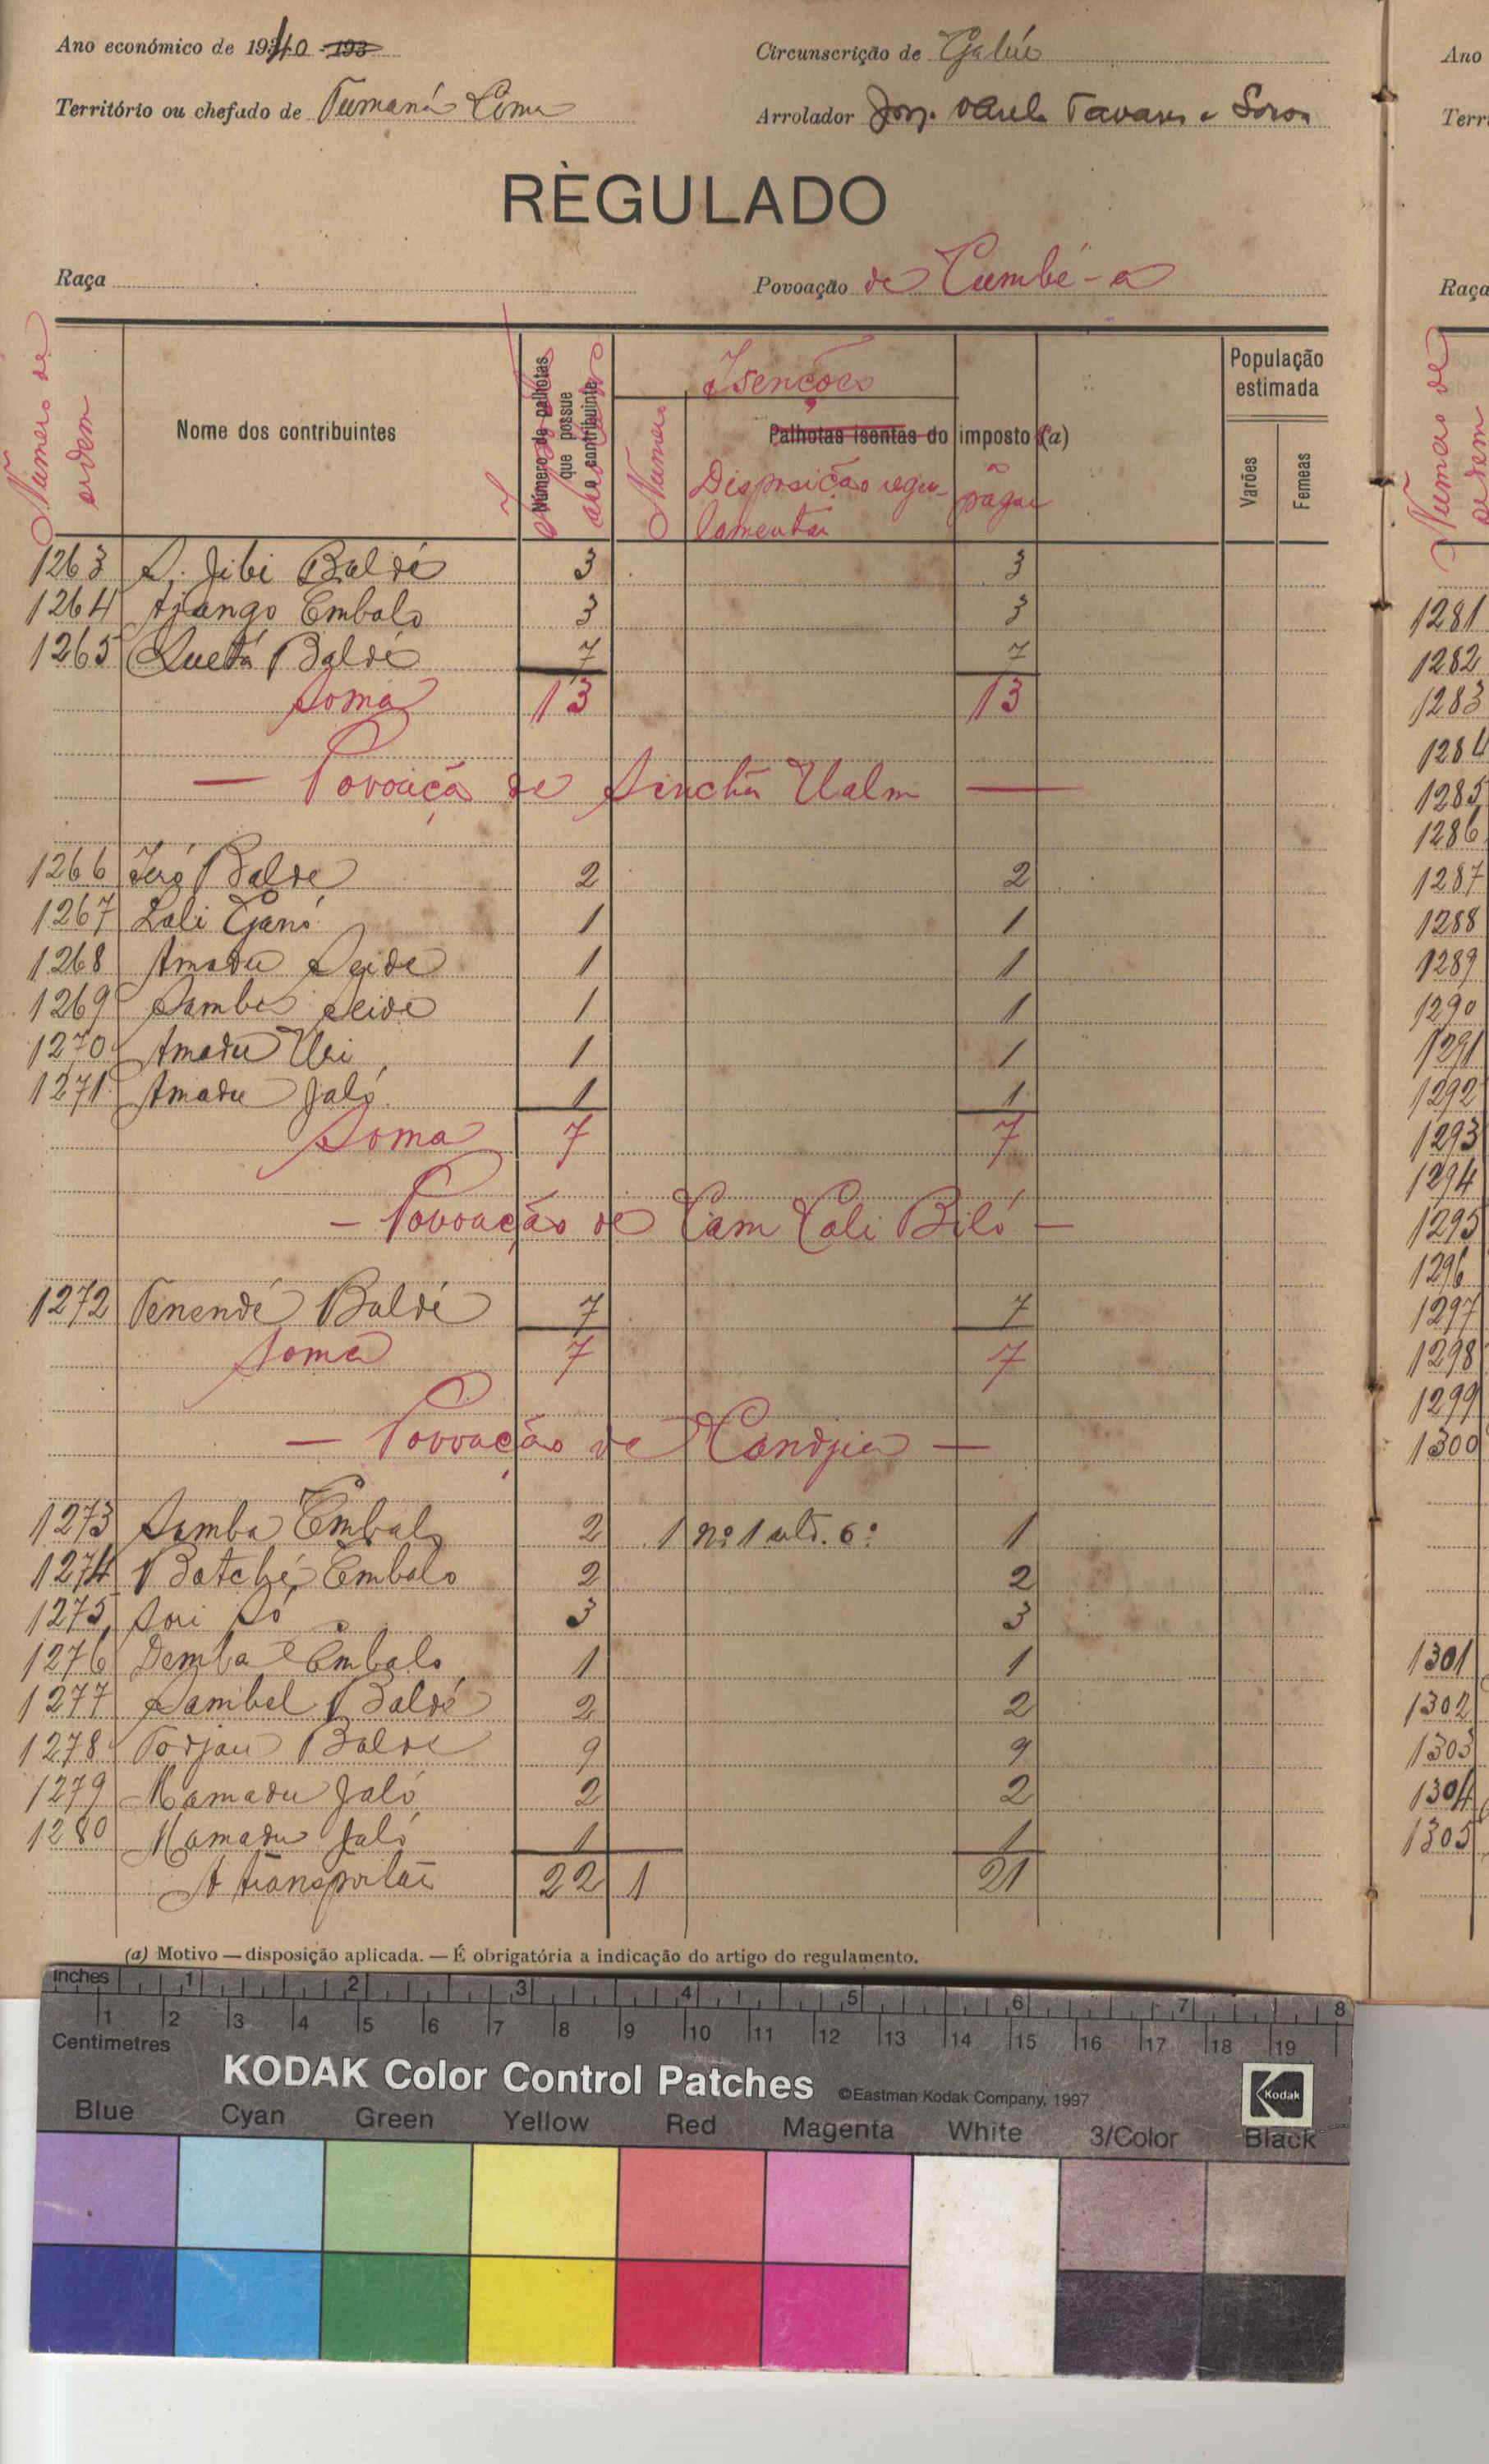 Ano económico de 1940 193
Circunscrição de Gabú
Território ou chefado de Tumaná Cima
Arrolador Tavares e Sousa
RÈGULADO
Raça
Povoação de Cumbé-a
Numero de ordem
Nome dos contribuintes
Número de palhotas que possue o contribuinte
Isenções
Numero
Palhotas isentas do imposto (a)
Disposição regulamentar
a pagar
População estimada
Varões
Femeas
1263 S. Jibi Baldé 3 3
1264 Ajango Embalo 3 3
1265 Quetá Baldé 7 7
Soma 13 13
— Povoação de Sinchã Ualm —
1266 Iéró Balde 2 2
1267 Lali Ganó 1 1
1268 Amadu Seide 1 1
1269 Samba Seide 1 1
1270 Amadu Uri 1 1
1271 Amadu Jaló 1 1
Soma 7 7
— Povoação de Cam Cali Biló —
1272 Tenendé Baldé 7 7
Soma 7 7
— Povoação de Candjia —
1273 Samba Embalo 2 1 nº 1 artº. 6º 1
1274 Batché Embalo 2 2
1275 Sori Só 3 3
1276 Demba Embalo 1 1
1277 Sambel Baldé 2 2
1278 Todjau Balde 9 9
1279 Mamadu Jaló 2 2
1280 Mamadu Jaló 1 1
A transportar 22 1 21
(a) Motivo — disposição aplicada. — É obrigatória a indicação do artigo do regulamento.
Ano
Terri
Raça
Numero de ordem
1281
1282
1283
1284
1285
1286
1287
1288
1289
1290
1291
1292
1293
1294
1295
1296
1297
1298
1299
1300
1301
1302
1303
1304
1305
inches 1 2 3 4 5 6 7 8
1 2 3 4 5 6 7 8 9 10 11 12 13 14 15 16 17 18 19
Centimetres
KODAK Color Control Patches ©Eastman Kodak Company, 1997 Kodak
Blue Cyan Green Yellow Red Magenta White 3/Color Black